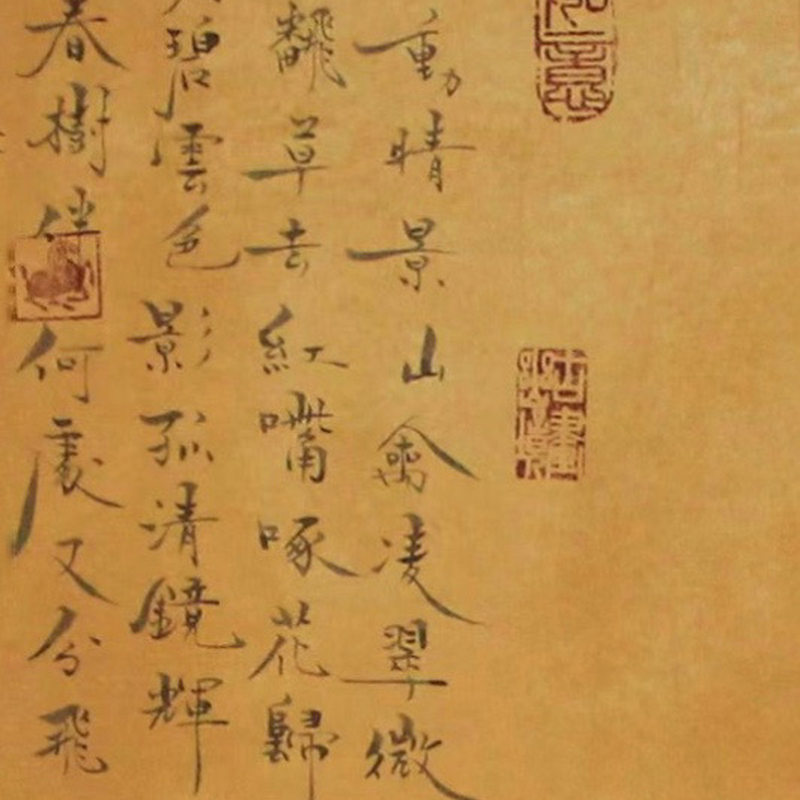 動晴景山禽凌翠微
翻草去紅嘴啄花歸
碧雲色影孤清鏡輝
春樹伴何處又分飛